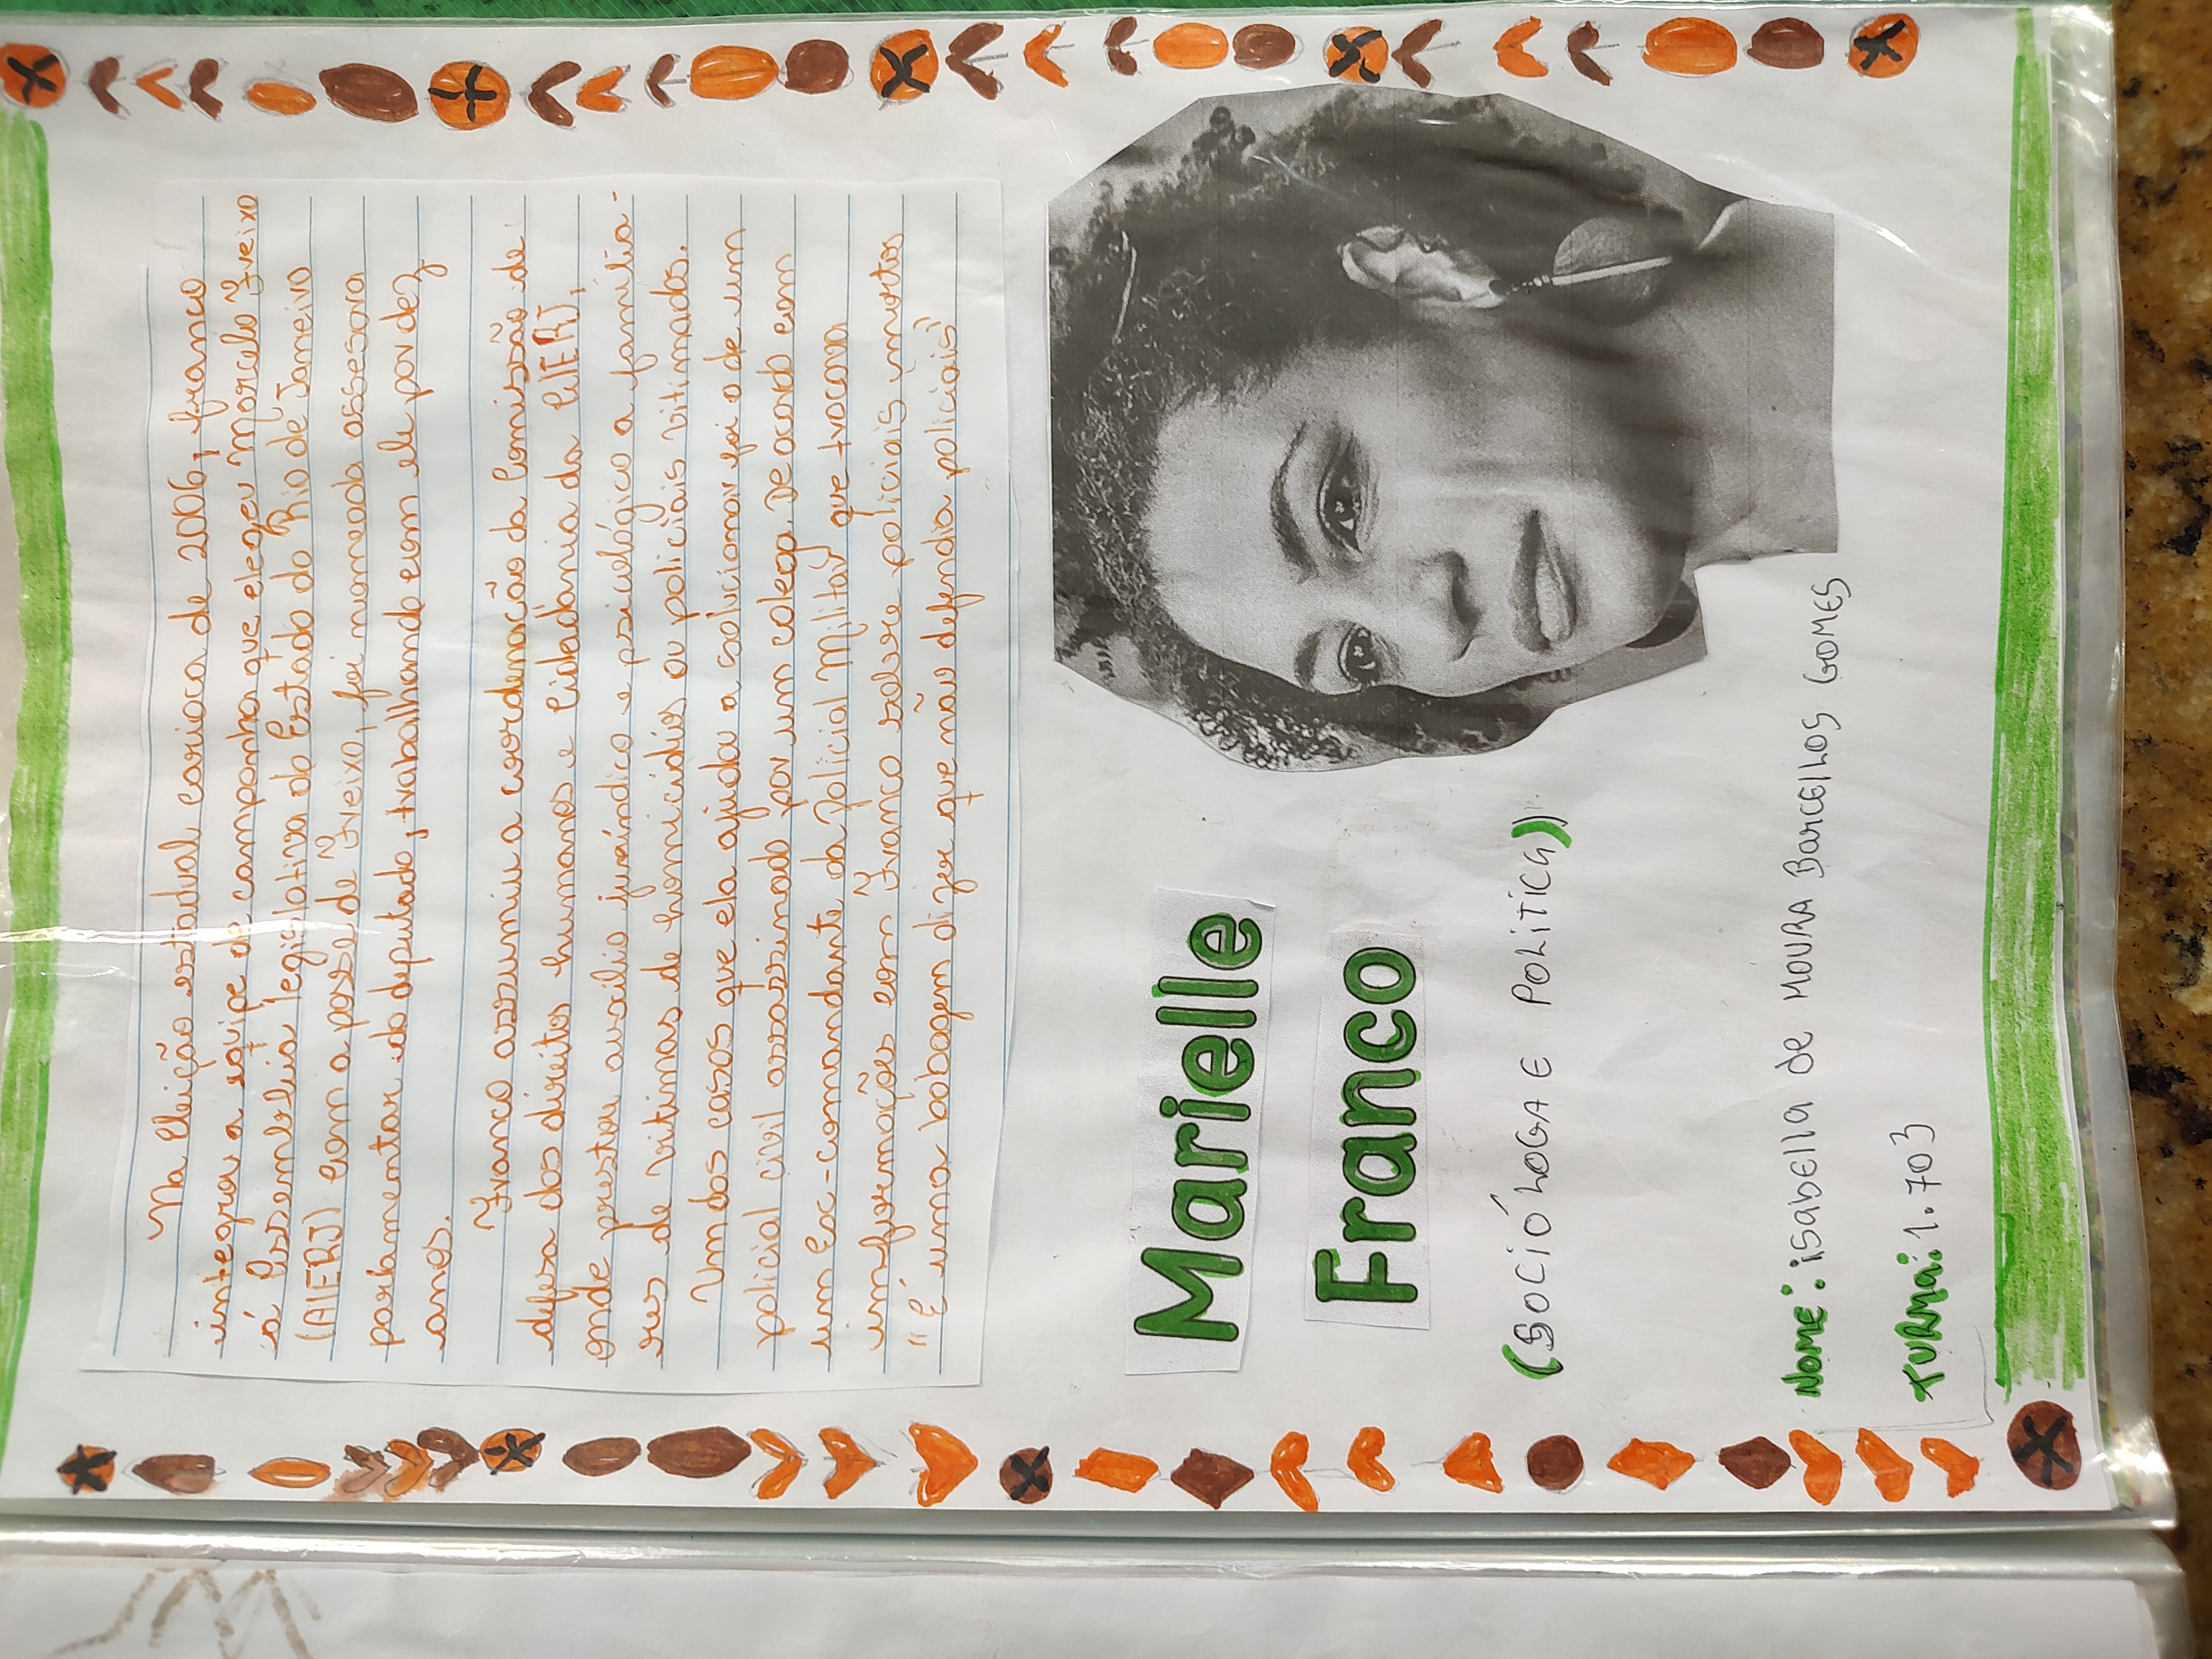 Na Eleição estadual carioca de 2006, franco
integrou a equipe de campanha que elegeu Marcelo Freixo
á Assembleia legislativa do Estado do Rio de Janeiro
(AlERJ) Com a posse de Freixo, foi nomeada assesora
parlamentar do deputado, trabalhando com ele por dez
anos.
Franco assumiu a cordenação da Comissão de
defesa dos direitos humanos e Cidadania da AlERJ,
onde prestou auxilio juríndico e psicológico a familia-
res de vitimas de homicidios ou policiais vitimados.
Um dos casos que ela ajudou a solucionar foi o de um
policial civil assassinado por um colega. De acordo com
um Exc-comandante da Policial Militar que trocava
informações com Franco sobre policiais mortos
"É uma bobagem dizer que não defendia policiais"
Marielle
Franco
(SOCIÓLOGA E POLITICA)
Nome: isabella de MOURA BarcEllos GOMES
TURMa: 1.703